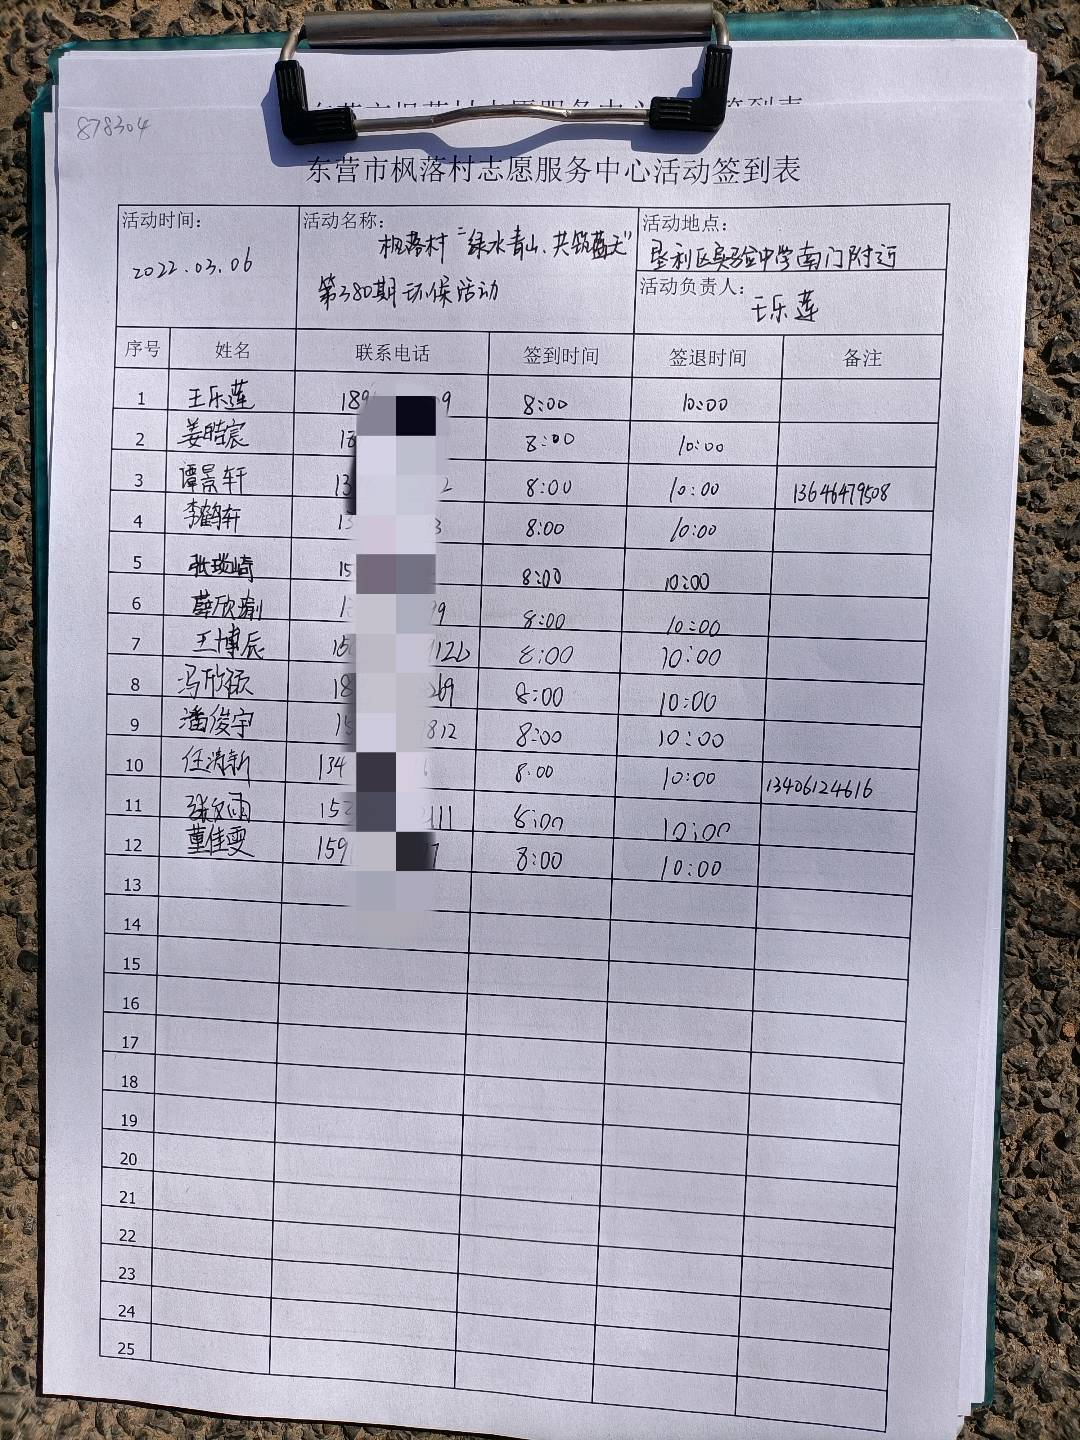 878304
东营市枫落村志愿服务中心活动签到表
活动时间: 2022.03.06
活动名称: 枫落村“绿水青山、共筑蓝天”
第380期环保活动
活动地点: 垦利区实验中学南门附近
活动负责人: 王乐莲
序号 姓名 联系电话 签到时间 签退时间 备注
1 王乐莲 189 9 8:00 10:00
2 姜皓宸 8:00 10:00
3 谭景轩 13 2 8:00 10:00 13646479508
4 李鹤轩 13 3 8:00 10:00
5 张瑞崎 15 8:00 10:00
6 薛欣瑜 99 8:00 10:00
7 王博辰 150 126 8:00 10:00
8 冯欣硕 18 269 8:00 10:00
9 潘俊宇 15 812 8:00 10:00
10 任清新 134 6 8:00 10:00 13406124616
11 张夕雨 152 111 8:00 10:00
12 董佳雯 159 7 8:00 10:00
13
14
15
16
17
18
19
20
21
22
23
24
25